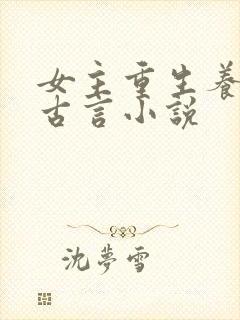 女主重生養
古言小説
沈夢雪